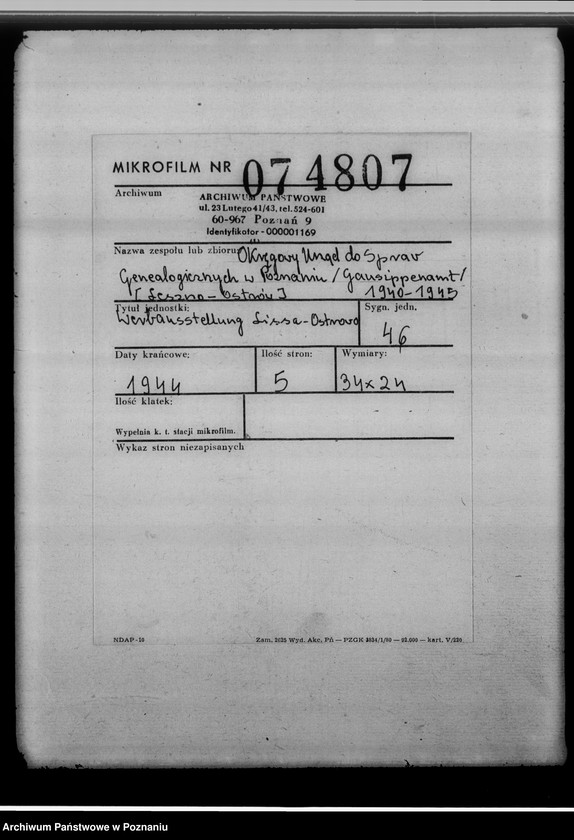 MIKROFILM NR 074807
Archiwum
ARCHIWUM PAŃSTWOWE
ul. 23 Lutego 41/43, tel. 524-601
60-967 Poznań 9
Identyfikator - 000001169
Nazwa zespołu lub zbioru: Okręgowy Urząd do Spraw
Genealogicznych w Poznaniu /Gausippenamt/
[Leszno - Ostrów] 1940-1945
Tytuł jednostki: Sygn. jedn.
Werbausstellung Lissa-Ostrowo 46
Daty krańcowe: Ilość stron: Wymiary:
1944 5 34x24
Ilość klatek:
Wypełnia k. t. stacji mikrofilm.
Wykaz stron niezapisanych
NDAP-10 Zam. 2025 Wyd. Akc. Pń — PZGK 3634/1/80 — kart. V/220
Archiwum Państwowe w Poznaniu